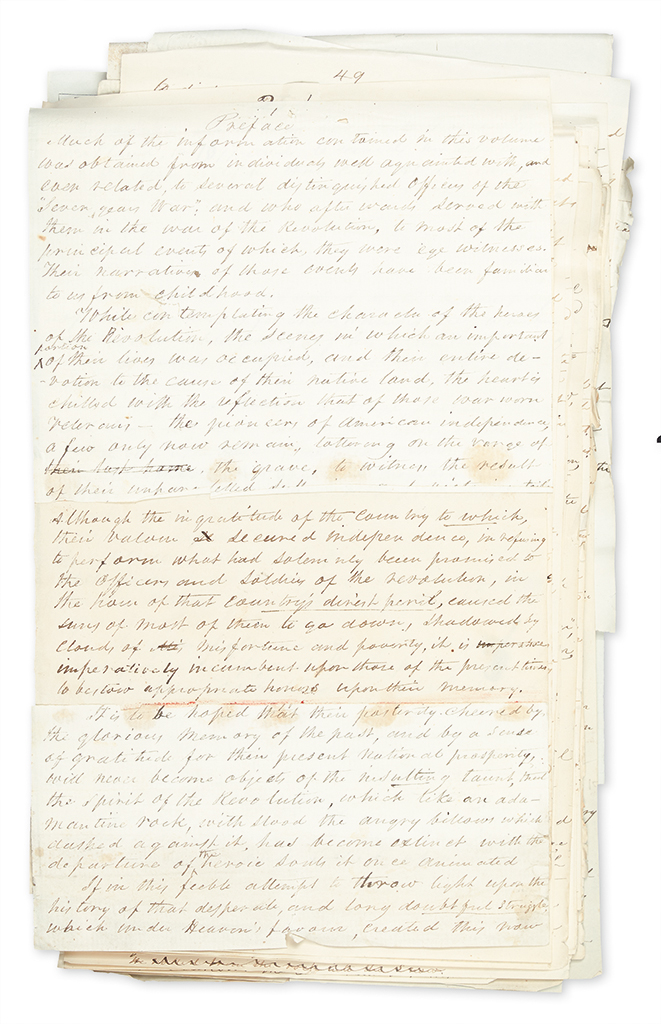 49
Preface
Much of the information contained in this volume
was obtained from individuals well aquainted with, and
even related, to several distinguished Officers of the
"Seven years War", and who after wards served with
them in the war of the Revolution, to most of the
principal events of which, they were eye witnesses.
Their narratives of those events have been familiar
to us from childhood.
While contemplating the character of the heroes
of the Revolution, the scenes in which an important
portion
of their lives was occupied, and their entire de-
-votion to the cause of their native land, the heart is
chilled with the reflection that of those war worn
Veterans — the pioneers of American independence,
a few only now remain, tottering on the verge of
the grave, to witness the result
of their unparalelled
Although the ingratitude of the Country to which,
their valour secured Independence, in refusing
to perform what had solemnly been promised to
the Officers and Soldiers of the revolution, in
the hour of that Country's direst peril, caused the
suns of most of them to go down, shadowed by
clouds of misfortune and poverty, it is
imperatively incumbent upon those of the present times,
to bestow appropriate honors upon their memory.
It is to be hoped that their posterity cheered by
the glorious memory of the past, and by a sense
of gratitude for their present National prosperity,
will never become objects of the insulting taunt, that
the spirit of the Revolution, which like an ada-
mantine rock, with stood the angry billows which
dashed against it, has become extinct with the
departure of the heroic souls it once animated
If in this feeble attempt to throw light upon the
history of that desperate, and long doubtful struggle,
which under Heaven's favour, created this now